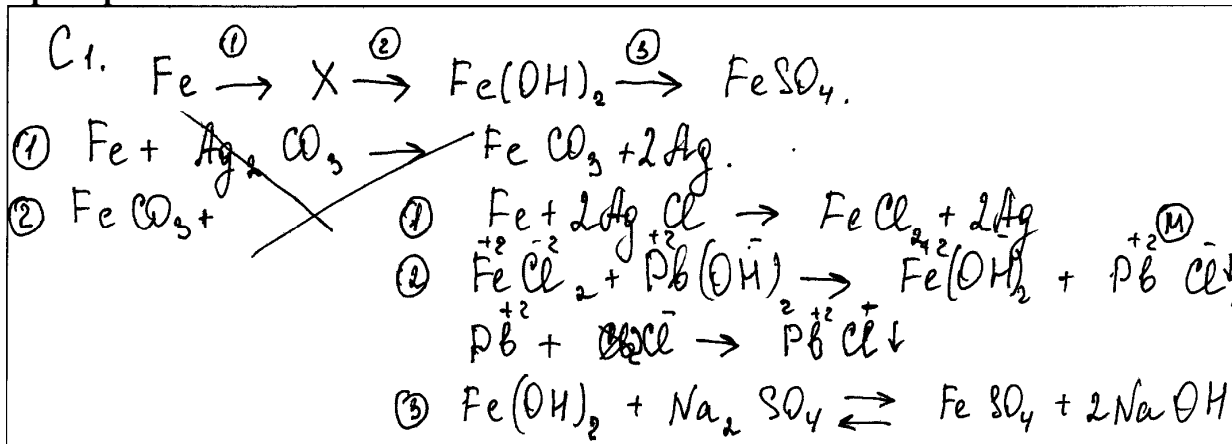 С1. Fe ①→ X ②→ Fe(OH)₂ ③→ FeSO₄.
① Fe + Ag₂CO₃ → FeCO₃ + 2Ag.
② FeCO₃ +
① Fe + 2AgCl → FeCl₂ + 2Ag
② Fe⁺²Cl⁻²₂ + Pb⁺²(OH⁻)₂ → Fe⁺²(OH⁻)₂ + Pb⁺²Cl⁻↓ Ⓜ
Pb⁺² + Cl⁻ → Pb⁺²Cl↓
③ Fe(OH)₂ + Na₂SO₄ ⇄ FeSO₄ + 2NaOH